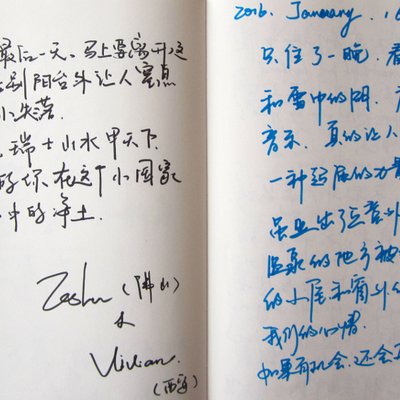 最后一天、马上要离开这
到阳台外让人窒息
小失落
瑞士山水甲天下
在这个小国家
中的净土
(佛山)
&
Vivian.
(西安)
2016. January.
只住了一晚,看
和雪中的阴
音乐,真的让人
一种超底的力量
虽然出了点意外
温泉的地方被
的小屋和窗外
我们的心情.
如果有机会,还会